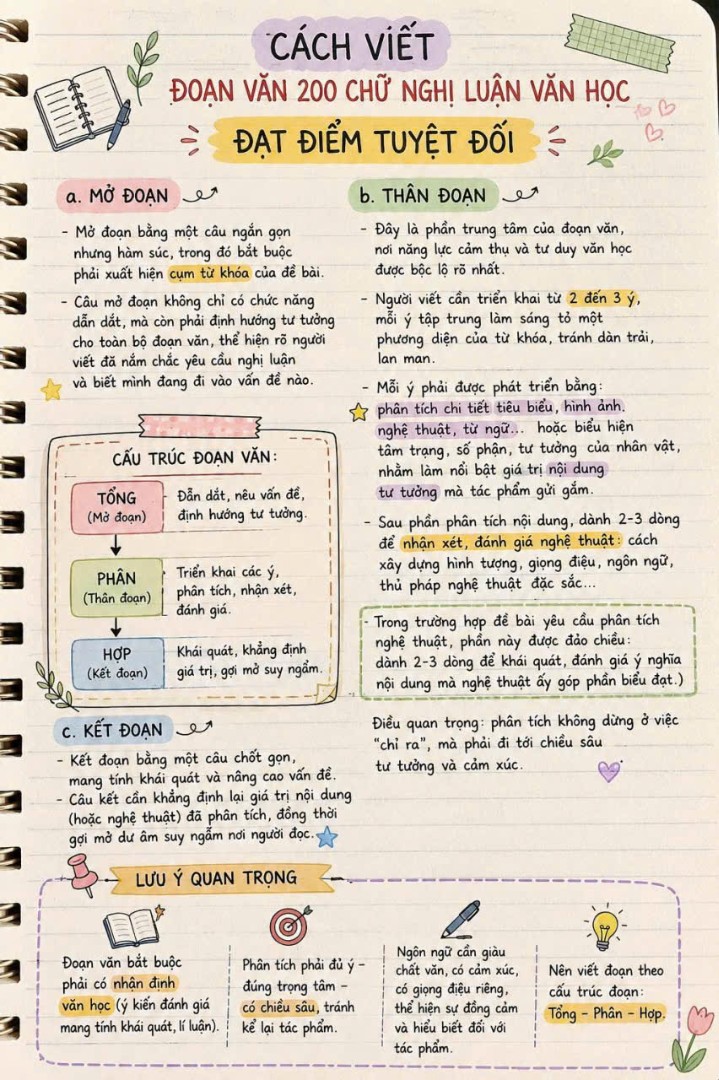 CÁCH VIẾT
ĐOẠN VĂN 200 CHỮ NGHỊ LUẬN VĂN HỌC
ĐẠT ĐIỂM TUYỆT ĐỐI
a. MỞ ĐOẠN
- Mở đoạn bằng một câu ngắn gọn
nhưng hàm súc, trong đó bắt buộc
phải xuất hiện cụm từ khóa của đề bài.
- Câu mở đoạn không chỉ có chức năng
dẫn dắt, mà còn phải định hướng tư tưởng
cho toàn bộ đoạn văn, thể hiện rõ người
viết đã nắm chắc yêu cầu nghị luận
và biết mình đang đi vào vấn đề nào.
CẤU TRÚC ĐOẠN VĂN:
TỔNG
(Mở đoạn)
Dẫn dắt, nêu vấn đề,
định hướng tư tưởng.
PHÂN
(Thân đoạn)
Triển khai các ý,
phân tích, nhận xét,
đánh giá.
HỢP
(Kết đoạn)
Khái quát, khẳng định
giá trị, gợi mở suy ngẫm.
c. KẾT ĐOẠN
- Kết đoạn bằng một câu chốt gọn,
mang tính khái quát và nâng cao vấn đề.
- Câu kết cần khẳng định lại giá trị nội dung
(hoặc nghệ thuật) đã phân tích, đồng thời
gợi mở dư âm suy ngẫm nơi người đọc.
b. THÂN ĐOẠN
- Đây là phần trung tâm của đoạn văn,
nơi năng lực cảm thụ và tư duy văn học
được bộc lộ rõ nhất.
- Người viết cần triển khai từ 2 đến 3 ý,
mỗi ý tập trung làm sáng tỏ một
phương diện của từ khóa, tránh dàn trải,
lan man.
- Mỗi ý phải được phát triển bằng:
phân tích chi tiết tiêu biểu, hình ảnh.
nghệ thuật, từ ngữ... hoặc biểu hiện
tâm trạng, số phận, tư tưởng của nhân vật,
nhằm làm nổi bật giá trị nội dung
tư tưởng mà tác phẩm gửi gắm.
- Sau phần phân tích nội dung, dành 2-3 dòng
để nhận xét, đánh giá nghệ thuật: cách
xây dựng hình tượng, giọng điệu, ngôn ngữ,
thủ pháp nghệ thuật đặc sắc...
- Trong trường hợp đề bài yêu cầu phân tích
nghệ thuật, phần này được đảo chiều:
dành 2-3 dòng để khái quát, đánh giá ý nghĩa
nội dung mà nghệ thuật ấy góp phần biểu đạt.)
Điều quan trọng: phân tích không dừng ở việc
"chỉ ra", mà phải đi tới chiều sâu
tư tưởng và cảm xúc.
LƯU Ý QUAN TRỌNG
Đoạn văn bắt buộc
phải có nhận định
văn học (ý kiến đánh giá
mang tính khái quát, lí luận).
Phân tích phải đủ ý -
đúng trọng tâm -
có chiều sâu, tránh
kể lại tác phẩm.
Ngôn ngữ cần giàu
chất văn, có cảm xúc,
có giọng điệu riêng,
thể hiện sự đồng cảm
và hiểu biết đối với
tác phẩm.
Nên viết đoạn theo
cấu trúc đoạn:
Tổng - Phân - Hợp.